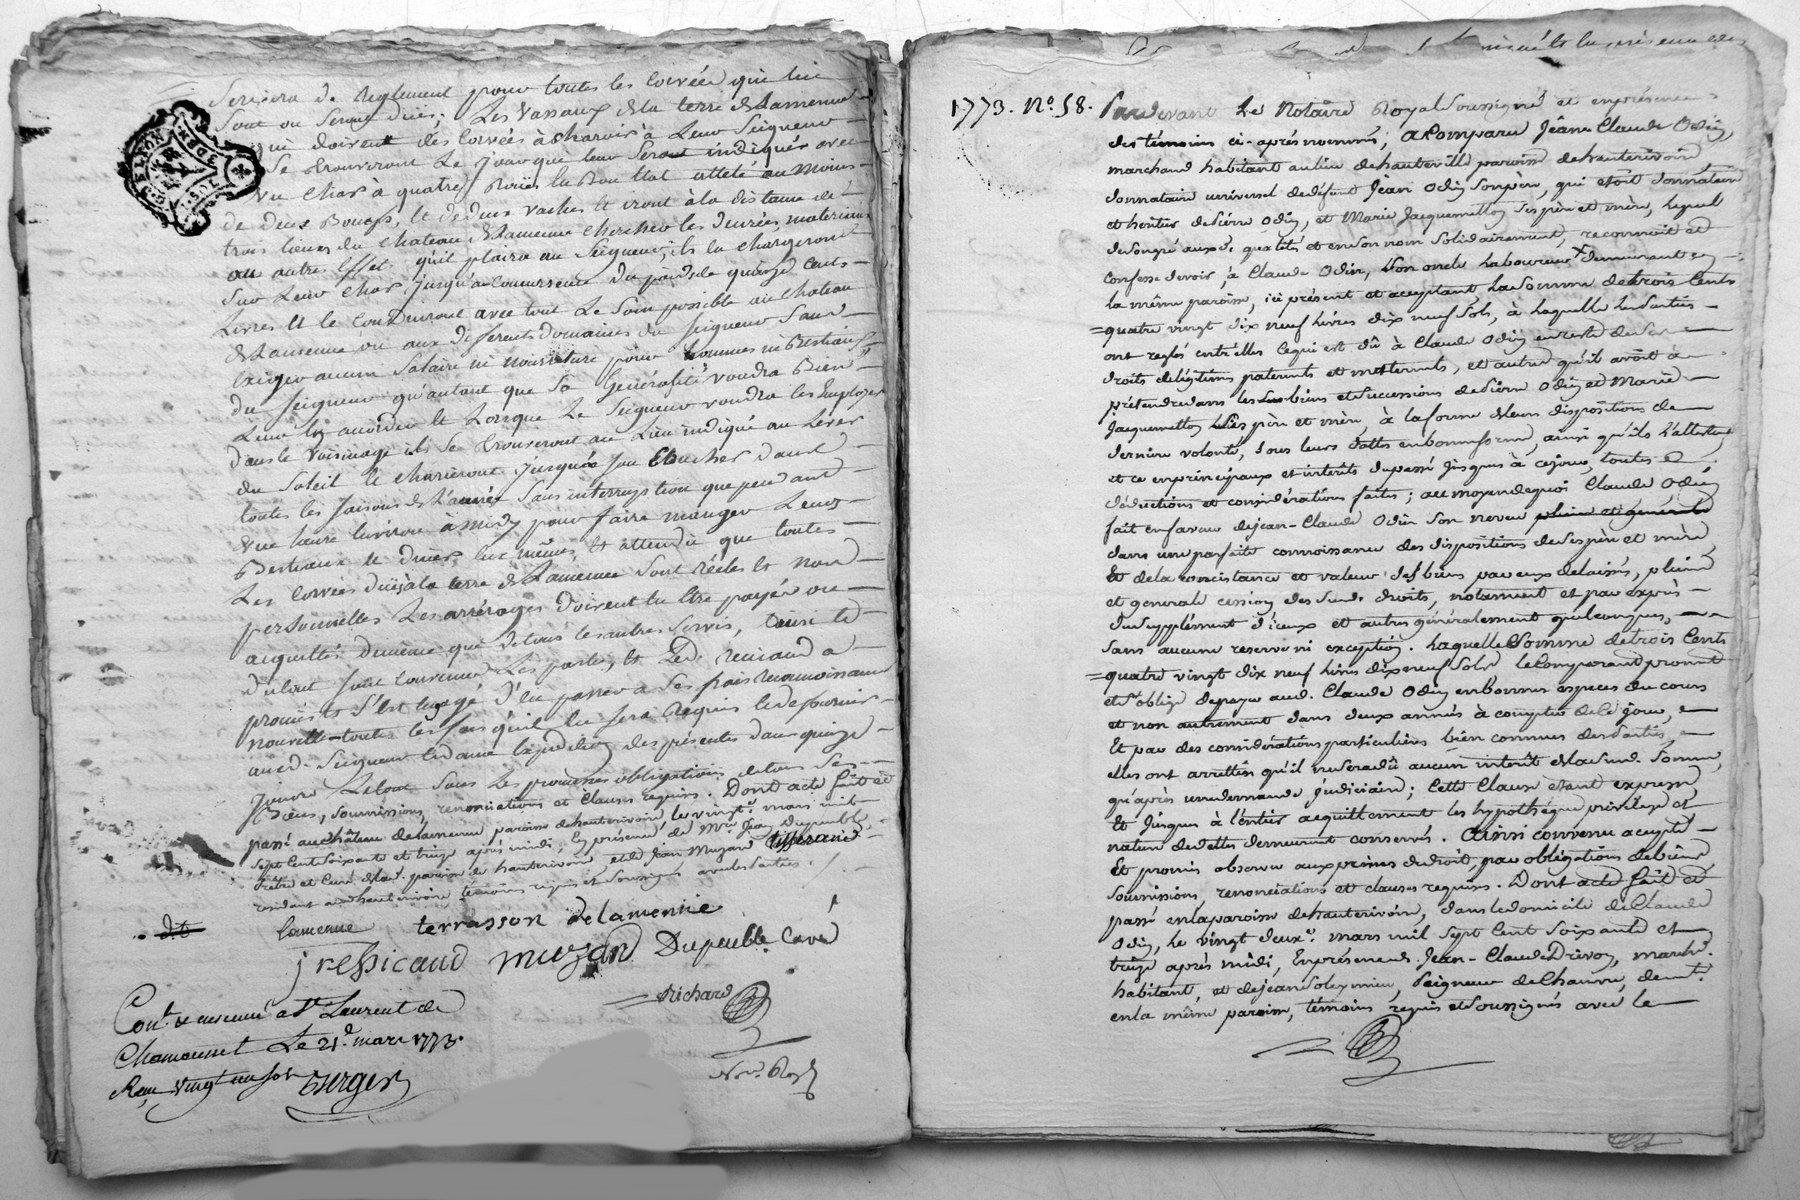 servira de Reglement pour toutes les Corvées qui lui
sont ou seront dües; Les Vassaux de la terre de Lamenue
qui doivent des Corvées à charois à Leur Seigneur
se trouveront Le jour qui leur sera indiqué avec
un Char a quatre Roües en Bon Etat attelé au moins
de deux Boeufs, et de deux vaches et iront à la distance de
trois lieues du chateau de Lamenue chercher les denrées, materiaux
ou autres Effets qu'il plaira au Seigneur; ils la chargeront
sur Leur Char jusqu'à concurrence du poids de quinze cents
Livres et le conduiront avec tout Le soin possible au chateau
de Lamenue ou aux differents domaines du Seigneur sans
exiger aucun salaire ni nourriture pour hommes ni Bestiaux
du Seigneur qu'autant que sa Généralité voudra Bien
Leur en accorder et Lorsque Le Seigneur voudra les Employer
dans le voisinage ils se trouveront au Lieu indiqué au Lever
du soleil et charieront jusqu'à son Coucher dans
toutes les saisons de L'année sans interruption que pendant
une heure environ à midy pour faire manger Leurs
Bestiaux et diner eux mêmes, et attendu que toutes
Les Corvées dües à la terre de Lamenue sont réeles et non
personnelles Les arrérages doivent en être payés ou
acquittés de même que de tous les autres servis,
du tout sont convenus Les parties, et Led. recicaud a
promis et s'est engagé d'en passer a ses frais reconnoissance
nouvelle toutes les fois qu'il en sera Requis et de fournir
aud. Seigneur et dame Expedition des présentes dans quinze
jours Le tout sous les promesses obligations de tous ses
Biens, soumissions, renonciations et Clauses requises. Dont acte fait et
passé au château de Lamenue paroisse de hauterivoire le vingt. mars mil
sept Cent Soixante et treize après midi, En présence de Mre Jean Dupeuble
Prêtre et Curé de lad. paroisse de hauterivoire et de Jean Muzard tisserand
résidant aud hauterivoire témoins requis et soussignés avec les parties
lamenue terrasson de lamenue
j ressicaud muzard Dupeuble Curé
Richard
Not. Roy.
Conl. & insinué a St Laurent de
Chamousset Le 21e mars 1773.
Reçu vingt un sols Burger
1773. No. 58.
Pardevant Le Notaire Royal Soussigné et en présence
des témoins ci-après nommés; a Comparu Jean Claude Odin,
marchand habitant au lieu de hauteville paroisse de hauterivoire
donnataire universel de défunt Jean Odin son père, qui étoit donnataire
et héritier de Pierre Odin, et Marie Jacquemetton ses père et mère, lequel
de son gré auxd. qualités et en son nom Solidairement, reconnoit et
confesse devoir, à Claude Odin, son oncle laboureur demeurant en
la même paroisse, ici présent et acceptant la Somme de trois Cents
quatre vingt dix neuf livres dix neuf sols, à laquelle les parties
ont reglés entr'elles ce qui est dû à Claude Odin en reste de ses
droits de légitimes paternels et maternels, et autres qu'il avoit à
prétendre dans les biens et successions de Pierre Odin et Marie
Jacquemetton ses père et mère, à la forme de leurs dispositions de
dernière volonté, sous leurs dattes en bonne forme, ainsi qu'ils l'attestent
et ce en principaux et intérêts du passé jusques à ce jour, toutes
déductions et considérations faites; au moyen de quoi Claude Odin
fait en faveur de jean-Claude Odin son neveu pleine et générale
dans une parfaite connoissance des dispositions de ses père et mère
Et de la consistance et valeur des biens par eux délaissés, pleine
et generale cession desd. droits, notament et par exprès
du supplément d'iceux et autres généralement quelconques,
sans aucune reserve ni exception. laquelle Somme de trois Cents
quatre vingt dix neuf livres dix neuf Sols le Comparant promet
et s'oblige de payer aud. Claude Odin en bonnes especes du cours
et non autrement dans deux années à compter de ce jour,
Et par des considérations particulières bien connues des parties,
elles ont arrettées qu'il ne sera dû aucun intérêt de lad. Somme,
qu'après une demande judiciaire; Cette Clause étant expresse
Et jusques à l'entier acquittement les hypothéque privilège et
nature de dettes demeurent conservés. Ainsi convenu accepté
Et promis observer aux peines de droit par obligations de biens
soumissions, renonciations et clauses requises. Dont acte fait et
passé en la paroisse de hauterivoire, dans le domicile de Claude
Odin, le vingt deux. mars mil sept Cent Soixante et
treize après midi, En présence de Jean-Claude Drivon, march.
habitant, et de jean Soleymieu, Peigneur de Chanvre, demt.
en la même paroisse, témoins requis et soussignés avec le